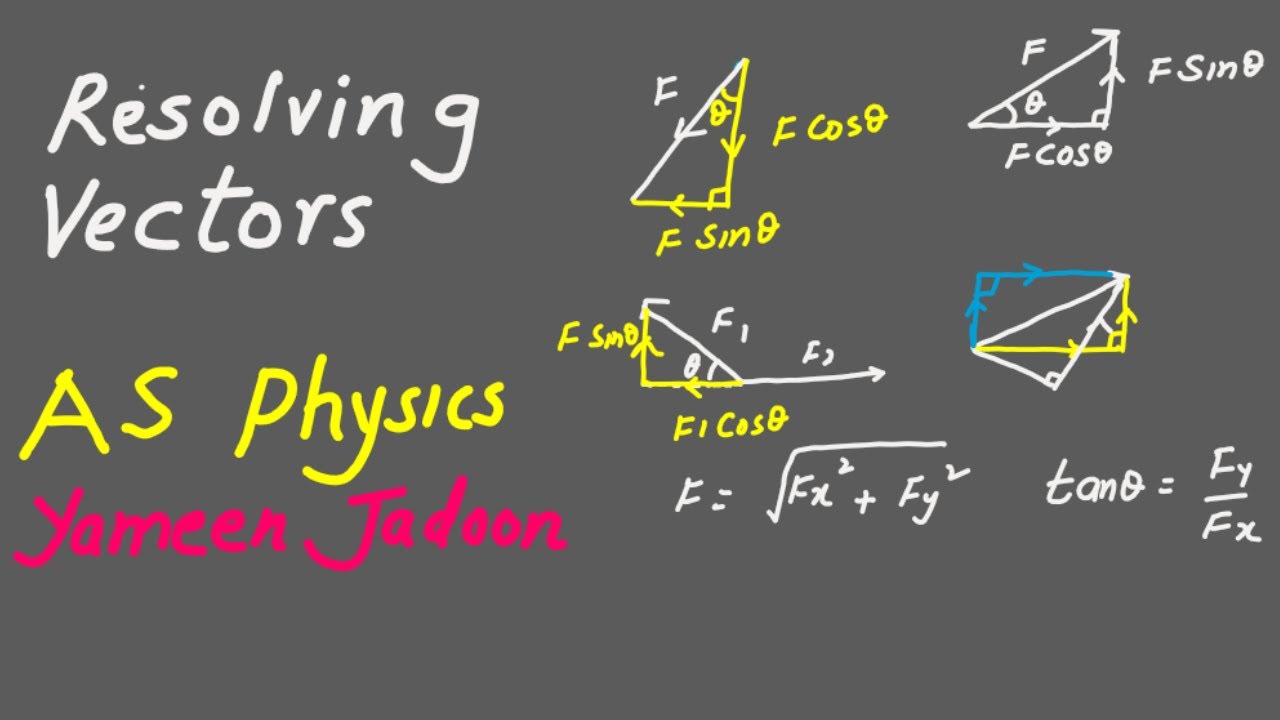 Resolving
Vectors
AS Physics
Yameen Jadoon
F
θ
F Cosθ
F Sinθ
F
θ
F Sinθ
F Cosθ
F Sinθ
F1
θ
F2
F1 Cosθ
F = √Fx² + Fy²
tanθ = Fy/Fx